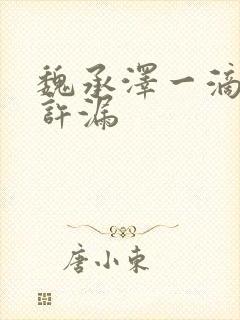 魏承澤一滴
許漏
唐小東